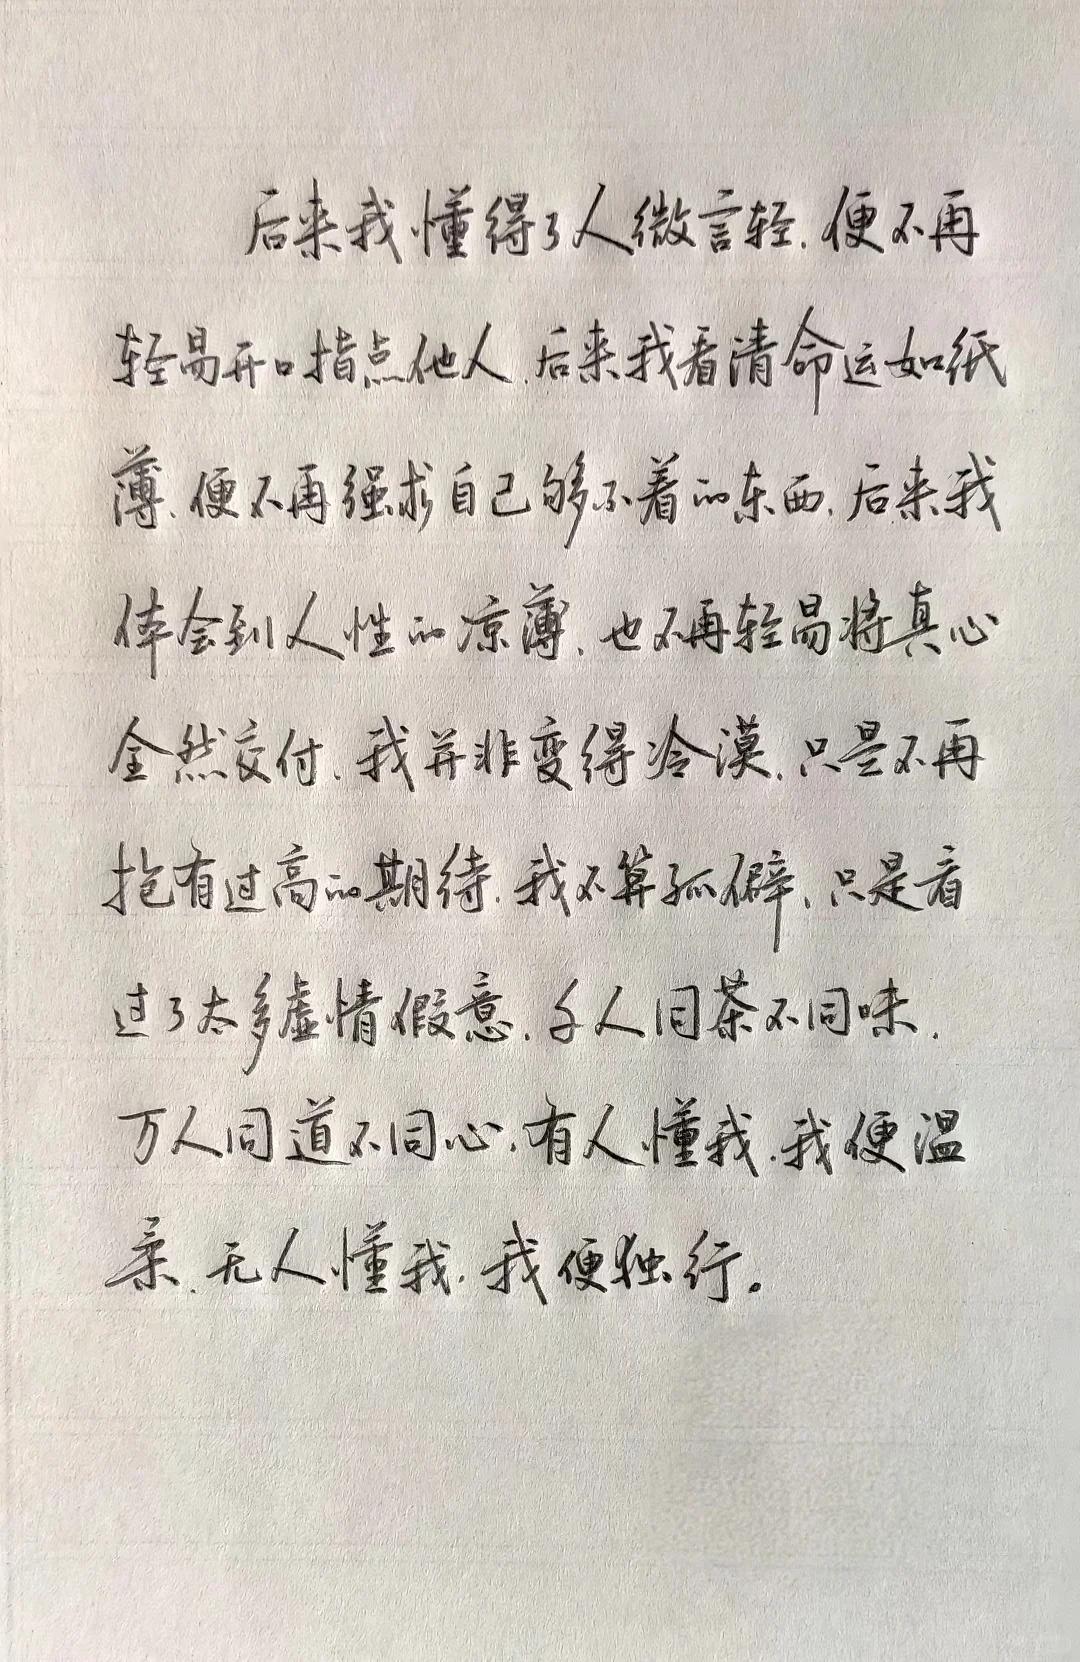 后来我懂得了人微言轻,便不再
轻易开口指点他人,后来我看清命运如纸
薄,便不再强求自己够不着的东西,后来我
体会到人性的凉薄,也不再轻易将真心
全然交付,我并非变得冷漠,只是不再
抱有过高的期待,我不算孤僻,只是看
过了太多虚情假意,千人同茶不同味,
万人同道不同心,有人懂我,我便温
柔,无人懂我,我便独行。